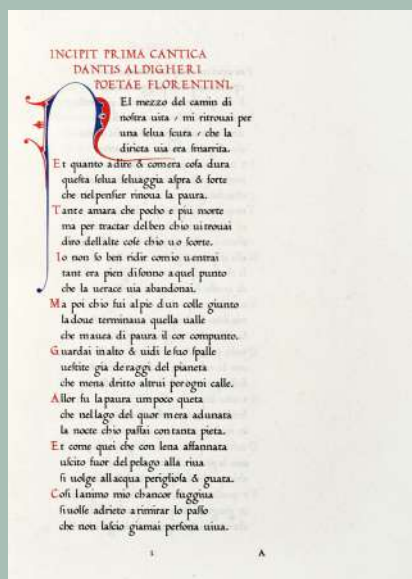 INCIPIT PRIMA CANTICA
DANTIS ALDIGHERI
POETAE FLORENTINI.
NEl mezzo del camin di
noſtra uita / mi ritrouai per
una ſelua ſcura / che la
diricta uia era ſmarrita.
Et quanto adire & comera coſa dura
queſta ſelua ſeluaggia aſpra & forte
che nelpenſier rinoua la paura.
Tante amara che pocho e piu morte
ma per tractar delben chio uitrouai
diro dellalte coſe chio uo ſcorte.
Io non ſo ben ridir comio uentrai
tant era pien diſonno aquel punto
che la uerace uia abandonai.
Ma poi chio fui alpie dun colle giunto
ladoue terminaua quella ualle
che mauea di paura il cor compunto.
Guardai inalto & uidi leſuo ſpalle
ueſtite gia deraggi del pianeta
che mena dritto altrui perogni calle.
Allor fu lapaura umpoco queta
che nellago del quor mera adunata
la nocte chio paſſai contanta pieta.
Et come quei che con lena affannata
uſcito fuor del pelago alla riua
ſi uolge allacqua periglioſa & guata.
Coſi lanimo mio chancor fuggiua
ſiuolſe adrieto arimirar lo paſſo
che non laſcio giamai perſona uiua.
1 A